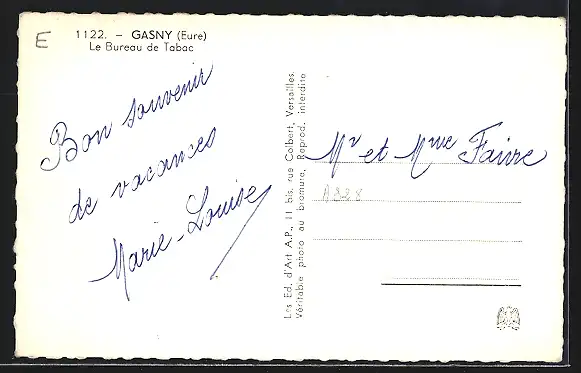 E
1122. – GASNY (Eure)
Le Bureau de Tabac
Bon souvenir
de vacances
Marie-Louise
Les Ed. d'Art A.P., 11 bis, rue Colbert, Versailles.
Véritable photo au bromure, Reprod. interdite
Mr et Mme Faivre
A328